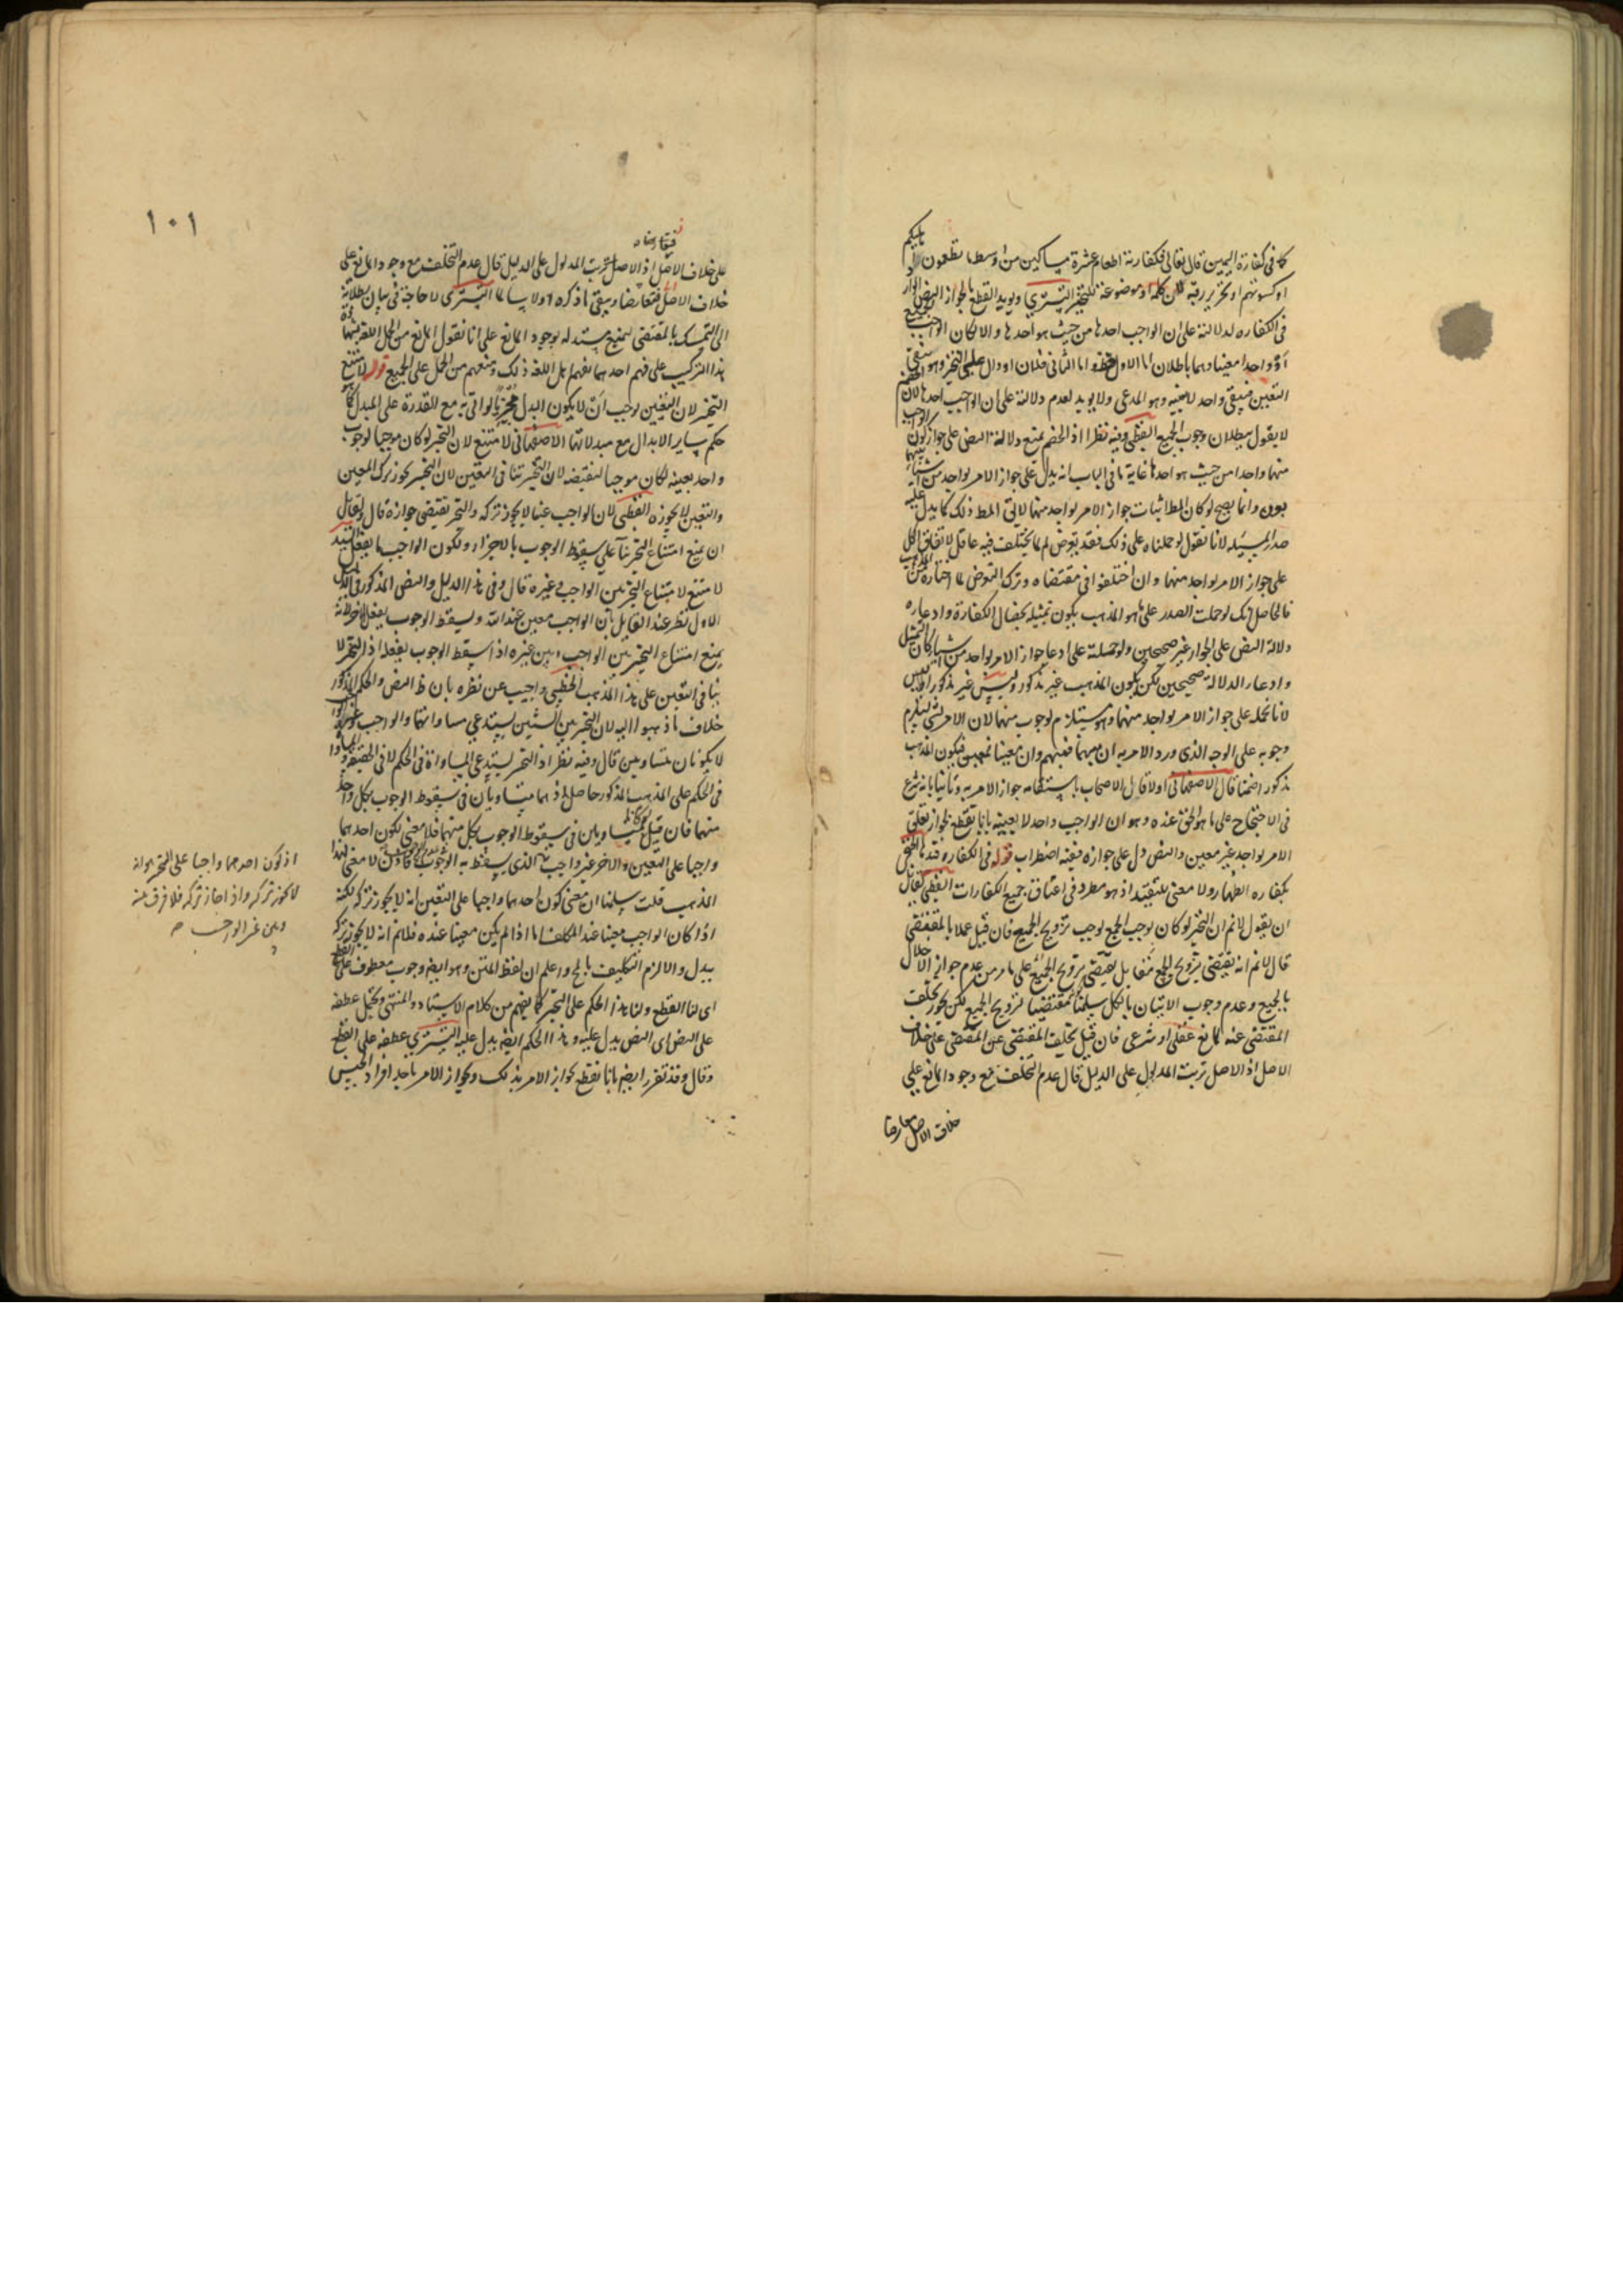 كما في كفارة اليمين قال تعالى فكفارته اطعام عشرة مساكين من اوسط ما تطعمون اهليكم
او كسوتهم او تحرير رقبة لان كلمة او موضوعة للتخيير التستري ويريد القطع بالجواز النص الوارد
في الكفاره لدلالته على ان الواجب احدها من حيث هو احدها والا لكان الواجب الجميع
او واحدا معينا وهما باطلان اما الاول فظ واما الثاني فلان او دال على التخيير وهو ينفي
التعيين فيبقى واحد لا بعينه وهو المدعى ولا يريد لعدم دلالته على ان الواجب احدها لان الخصم
لا يقول ببطلان وجوب الجميع القطبي وفيه نظر اذ الخصم يمنع دلالة النص على جواز كون الواجب
منها واحدا من حيث هو احدها غاية ما في الباب انه يدل على جواز الامر بواحد من اشياء
وانما يصح لو كان المط اثبات جواز الامر بواحد منها لا يق المط ذلك كما يدل عليه
صدر المسئله لانا نقول لو حملناه على ذلك فقد تعرض لما لم يختلف فيه عاقل لاتفاق الكل
على جواز الامر بواحد منها وان اختلفوا في مقتضاه وترك التعرض لما اختاره من المذهب
فالحاصل انك لو حملت الصدر على ما هو المذهب يكون تمثيله بخصال الكفارة وادعاره
دلالة النص على الجواز غير صحيحين ولو حملته على ادعا جواز الامر بواحد من اشياء كان التمثيل
وادعاء الدلالة صحيحين لكن يكون المذهب غير مذكور وليس غير مذكور
لانا نحمله على جواز الامر بواحد منها وهو مستلزم لوجوب منها لان الامر بشي يستلزم
وجوبه على الوجه الذي ورد الامر به ان مبهما فمبهم وان معينا فمعين فيكون المذهب
مذكورا ضمنا قال الاصفهاني اولا قال الاصحاب باستقامه جواز الامر به وثانيا بانه شرع
في الاحتجاج على ما هو الحق عنده وهو ان الواجب واحد لا بعينه بانا نقطع بجواز تعلق
الامر بواحد غير معين والنص دل على جوازه ففيه اضطراب قوله في الكفاره قيدها
بكفاره الظهار ولا معنى للتقييد اذ هو مطرد في اعتاق جميع الكفارات القطبي لقائل
ان يقول لا نم ان التخيير لو كان يوجب الجمع لوجب تزويج الجميع فان قيل عملا بالمقتضى
قال لا نم انه يقتضي تزويج الجميع بل يقتضي تزويج الجميع على ما مر من عدم جواز الاخلال
بالجميع وعدم وجوب الاتيان بالكل سلمنا مقتضيا لتزويج الجميع لكن يجوز تخلف
المقتضى عنه لمانع عقلي او شرعي فان قيل تخلف المقتضى عن المقتضي على خلاف
الاصل اذ الاصل ترتب المدلول على الدليل قال عدم التخلف مع وجود المانع على
خلاف الاصل
١٠١
على خلاف الاصل اذ الاصل ترتب المدلول على الدليل قال عدم التخلف مع وجود المانع على
خلاف الاصل فتعارضا ويبقى ما ذكره اولا سالما التستري لا حاجة في بيان بطلانه
الى التمسك بالمقتضى ليمنع مستندا له بوجود المانع على انا نقول المانع من الحمل اللغة
هذا التركيب على فهم احدهما بفهم اهل اللغة ذلك ومنعهم من الحمل على الجميع قوله لامتنع
التخيير لان التعيين يوجب ان لا يكون البدل مجزيا لو اتى به مع القدرة على المبدل كما هو
حكم سائر الابدال مع مبدلاتها الاصفهاني لامتنع لان التخيير لو كان موجبا لوجوب
واحد بعينه لكان موجبا لنقيضه لان التخيير ينافي التعيين لان التخيير يجوز ترك المعين
والتعيين لا يجوزه القطبي لان الواجب عينا لا يجوز تركه والتخيير يقتضي جوازه قال ولقائل
ان يمنع امتناع التخيير بناء على سقوط الوجوب بالاجزاء ويكون الواجب ما يفعل
لامتنع لامتناع التخيير بين الواجب وغيره قال وفي هذا الدليل والنص المذكور في الدليل
الاول نظر عند القايل بان الواجب معين عند الله ويسقط الوجوب بفعل الاخر لانه
يمنع امتناع التخيير بين الواجب وبين غيره اذا سقط الوجوب بفعله اذ التخيير لا
ينافي التعيين على هذا المذهب الخطيبي واجيب عن نظره بان ظ النص والحكم المذكور
خلاف ما ذهبوا اليه لان التخيير بين الشيئين يستدعي مساواتهما والواجب وغير الواجب
لا يكونان متساويين قال وفيه نظر اذ التخيير يستدعي المساواة في الحكم لا في الحقيقة والمساواة
في الحكم على المذهب المذكور حاصل اذ هما متساويان في سقوط الوجوب بكل واحد
منهما فان قيل لو كانا متساويين في سقوط الوجوب بكل منهما فلا معنى لكون احدهما
واجبا على التعيين والاخر غير واجب الذي يسقط به الوجوب لا معنى لهذا
المذهب قلت سلمنا ان معنى كون احدهما واجبا على التعيين انه لا يجوز تركه لكنه
اذا كان الواجب معينا عند المكلف اما اذا لم يكن معينا عنده فلا نم انه لا يجوز تركه
ببدل والا لزم التكليف بالمح واعلم ان لفظ المتن وهو ايضا وجوب معطوف على القطع
اي لنا القطع ولنا هذا الحكم على التخيير كما يفهم من كلام الاستاد والمنتهى ويحتمل عطفه
على النص اي النص يدل عليه وهذا الحكم ايضا يدل عليه التستري عطفه على القطع
وقال وقد تقرر ايضا بانا نقطع بجواز الامر بذلك وبجواز الامر باحد افراد الجنس
اذ كون احدهما واجبا على التخيير هو انه
لا يجوز تركه واذا جاز تركه فلا فرق بينه
وبين غير الواجب